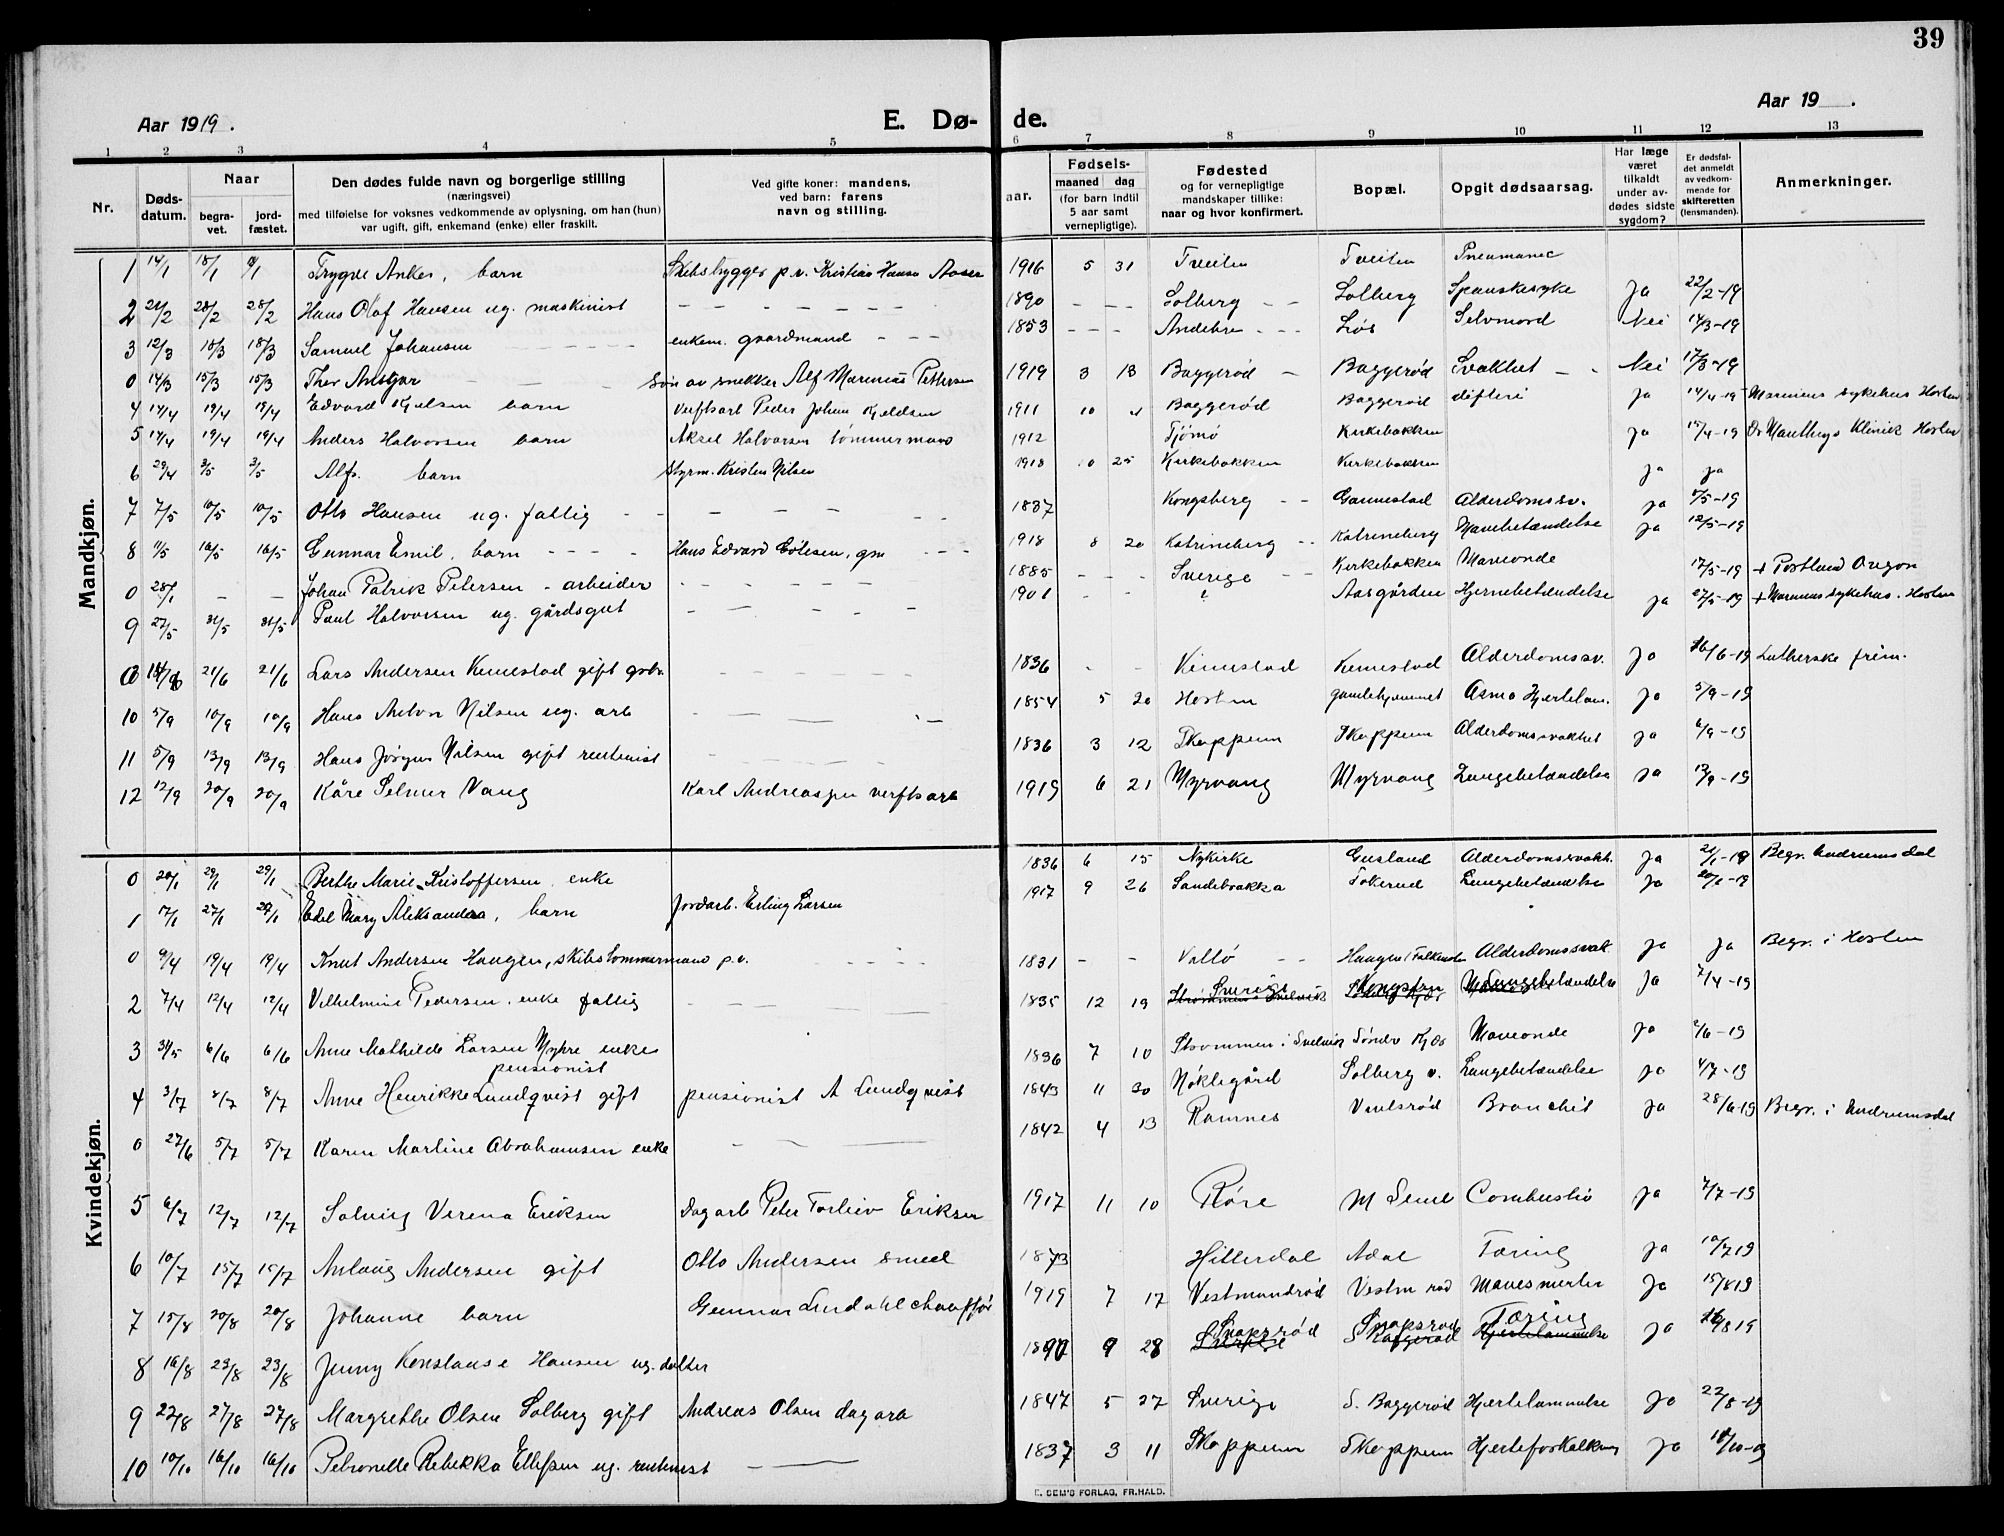 39
Aar 1919.
E. Dø-
de.
Aar 19 .
1 2 3 4 5 6 7 8 9 10 11 12 13
Nr.
Døds-datum.
Naar
begra-vet.
jord-fæstet.
Den dødes fulde navn og borgerlige stilling
(næringsvei)
med tilføielse for voksnes vedkommende av oplysning, om han (hun)
var ugift, gift, enkemand (enke) eller fraskilt.
Ved gifte koner: mandens,
ved barn: farens
navn og stilling.
aar.
Fødsels-
maaned dag
(for barn indtil
5 aar samt
vernepligtige).
Fødested
og for vernepligtige
mandskaper tillike:
naar og hvor konfirmert.
Bopæl.
Opgit dødsaarsag.
Har læge
været
tilkaldt
under av-
dødes sidste
sygdom?
Er dødsfal-
det anmeldt
av vedkom-
mende for
skifteretten
(lensmanden).
Anmerkninger.
Mandkjøn.
1 14/1 18/1 Trygve Anker, barn Skibsbygger p.v. Kristian Hansen 1916 5 31 Tveiten Tveiten
2 21/2 28/2 28/2 Hans Olaf Hansen ug. maskinist 1890 Solberg Solberg Spanskesyke Ja 22/2-19
3 12/3 18/3 18/3 Samuel Johansen enkem. gaardmand 1853 Andebu Selvmord Nei 14/3-19
0 14/3 15/3 15/3 Thor Ansgar Søn av snekker Alf Marinius Pettersen 1919 3 13 Baggerød Baggerød Svakhet Nei 17/3-19
4 14/4 19/4 19/4 Edvard Kjelsen barn Verftsarb Peder Johan Kjeldsen 1911 10 Baggerød Baggerød difteri Ja 14/4-19 Marinens sykehus Horten
5 14/4 19/4 19/4 Anders Halvorsen barn Aksel Halvorsen tømmermand 1912 Tjømø Kirkebakken ja 15/4-19 Klinik Horten
6 29/4 3/5 3/5 Alf. barn Styrm. Kristen Nilsen 1918 10 25 Kirkebakken Kirkebakken ja ja
7 7/5 10/5 10/5 Otto Hansen ug. fattig 1837 Kongsberg Gannestad Alderdomssv. ja 8/5-19
8 11/5 16/5 16/5 Gunnar Emil, barn Hans Edvard 1918 8 20 Katrineberg Katrineberg Mavebetændelse ja 12/5-19
0 28/1 - - Johan Patrik Petersen - arbeider 1885 Sverige Kirkebakken Maveonde 17/5-19 + Portland Oregon
9 27/5 31/5 31/5 Paul Halvorsen ug. gårdsgut 1901 Aasgården Hjernebetændelse ja 27/5-19 + Marinens sykehus. Horten
0 21/6 21/6 Lars Andersen Kimestad gift gbr. 1836 Kimestad Kimestad Alderdomssv. Ja 16/6-19 Lutherske frim.
10 5/9 10/9 10/9 Hans Anton Nilsen ug. arb 1854 5 20 Horten gamlehjemmet Asma Hjertelam. Ja 5/9-19
11 5/9 13/9 13/9 Hans Jörgen Nilsen gift rentenist 1836 3 12 Skoppum Skoppum Alderdomssvakhet ja 6/9-19
12 12/9 20/9 20/9 Kåre Selmer Vang Karl Andreassen verftsarb 1919 6 21 Myrvang Myrvang Lungebetændelse ja 13/9-19
Kvindekjøn.
0 20/1 29/1 29/1 Berthe Marie Kristoffersen. enke 1836 6 15 Nykirke Gusland Alderdomssvakh. Ja 21/1-19 Begr. Undrumsdal
1 17/1 27/1 29/1 Edel Mary Aleksandra, barn Jordarb. Erling Larsen 1917 9 26 Sandebakka Tokerud Lungebetændelse Ja 20/1-19
0 9/4 19/4 19/4 Knut Andersen Haugen, skibstømmermand p.v. 1831 Vallø Haugen Alderdomssvak. Ja Ja Begr. i Horten
2 7/4 12/4 12/4 Vilhelmine Pedersen. enke fattig 1835 12 19 Sverige Lungebetændelse Ja 7/4-19
3 31/5 6/6 6/6 Anne Mathilde Larsen Myhre enke 1836 7 10 Strømmen i Svelvik Søndre Kjær Maveonde Ja 2/6-19
pensionist
4 3/7 8/7 8/7 Anne Henrikke Lundqvist gift pensionist A Lundqvist 1843 11 30 Nøklegård Solberg v. Lungebetændelse Ja 4/7-19
0 27/6 5/7 5/7 Karen Martine Abrahamsen enke 1842 4 13 Ramnes Bronchit Ja 28/6-19 Begr. i Undrumsdal
5 6/7 12/7 12/7 Solveig Verena Eriksen Dagarb Peter Torleiv Eriksen 1917 11 10 Røre Combustio Ja 7/7-19
6 10/7 15/7 15/7 Anlaug Andersen gift Otto Andersen smed 1873 Hitterdal Adal Tæring Ja 10/7 19
7 15/8 20/8 20/8 Johanne barn Gunnar Lindahl chauffør 1919 7 17 Vestmundrød Vestm rød Mavesmerter Ja 15/8 19
8 16/8 23/8 23/8 Jenny Konstanse Hansen ug. datter 1890 9 28 Snapsrød Snapsrød Tæring Ja 16/8 19
9 22/8 27/8 27/8 Margrethe Olsen Solberg gift Andreas Olsen dagarb 1847 5 27 Sverige S. Baggerød Hjertelammelse Ja 22/8-19
10 10/10 16/10 16/10 Petronelle Rebekka Ellefsen ug. rentenist 1837 3 11 Skoppum Skoppum Hjerteforkalkning Ja
E. SEM'S FORLAG, FR.HALD.